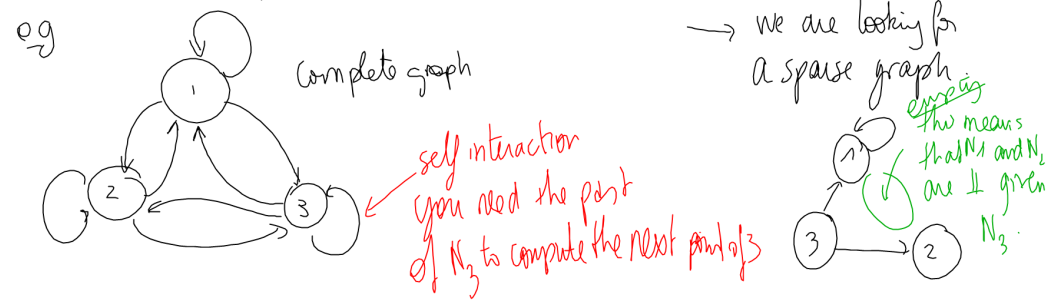 eg
1
2
3
complete graph
self interaction
you need the past
of N3 to compute the next point of 3
→ we are looking for
a sparse graph.
empty
this means
that N1 and N2
are ⫫ given
N3.
1
3
2